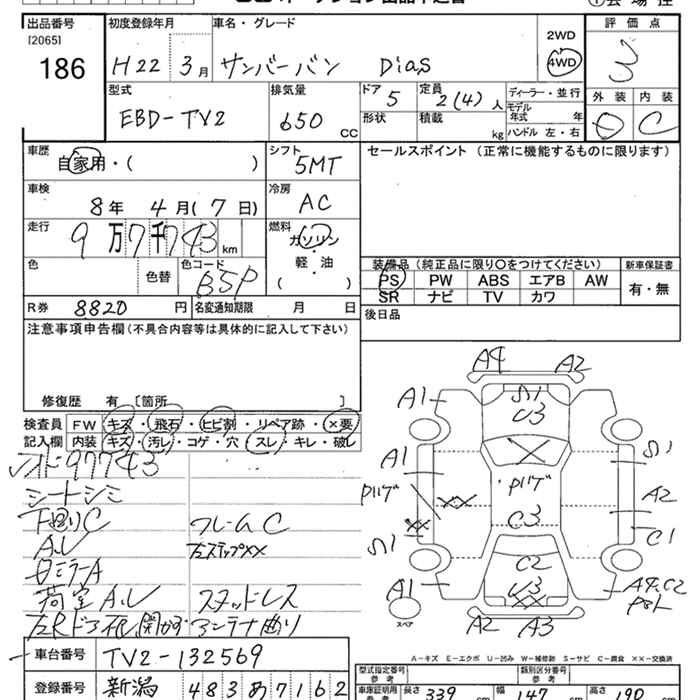 出品番号 [2065] 186
初度登録年月 H22 3月
車名・グレード サンバーバン Dias
2WD 4WD
評価点 3
型式 EBD-TV2
排気量 650 CC
ドア 5
形状
定員 2(4) 人
積載 kg
ディーラー・並行
モデル年式 年
ハンドル 左・右
外装 D 内装 C
車歴 自家用・( )
シフト 5MT
セールスポイント (正常に機能するものに限ります)
車検 8年 4月(7日)
冷房 AC
走行 9万7千743 km
燃料 ガソリン・軽・油 ( )
色 色替 色コード B5P
装備品 (純正品に限り○をつけてください) 新車保証書
PS PW ABS エアB AW 有・無
SR ナビ TV カワ
R券 8820円 名変通知期限 月 日
後日品
注意事項申告欄 (不具合内容等は具体的に記入して下さい)
修復歴 有 [箇所 ]
検査員 FW キズ・飛石・ヒビ割・リペア跡・×要
記入欄 内装 キズ・汚レ・コゲ・穴・スレ・キレ・破レ
97743
シートシミ
下回りC フレームC
A,U 左ステップ××
荷室A,U スタッドレス
アンテナ曲り
A4 A2
A1 S1 U3
A1 S1
P11ゲ P11ゲ A2
×× ×× C3 C1
S1 C2
A1 U3 ×× A4,C2
スペア
A2 A3
A-キズ E-エクボ U-凹み W-補修跡 S-サビ C-腐食 ××-交換済
車台番号 TV2-132569
型式指定番号 参考 類別区分番号 参考
登録番号 新潟 483あ7162
車庫証明用 参考 長さ 339 cm 幅 147 cm 高さ 190 cm